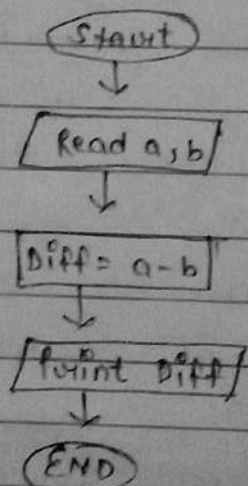 Start
Read a, b
Diff = a - b
Print Diff
END